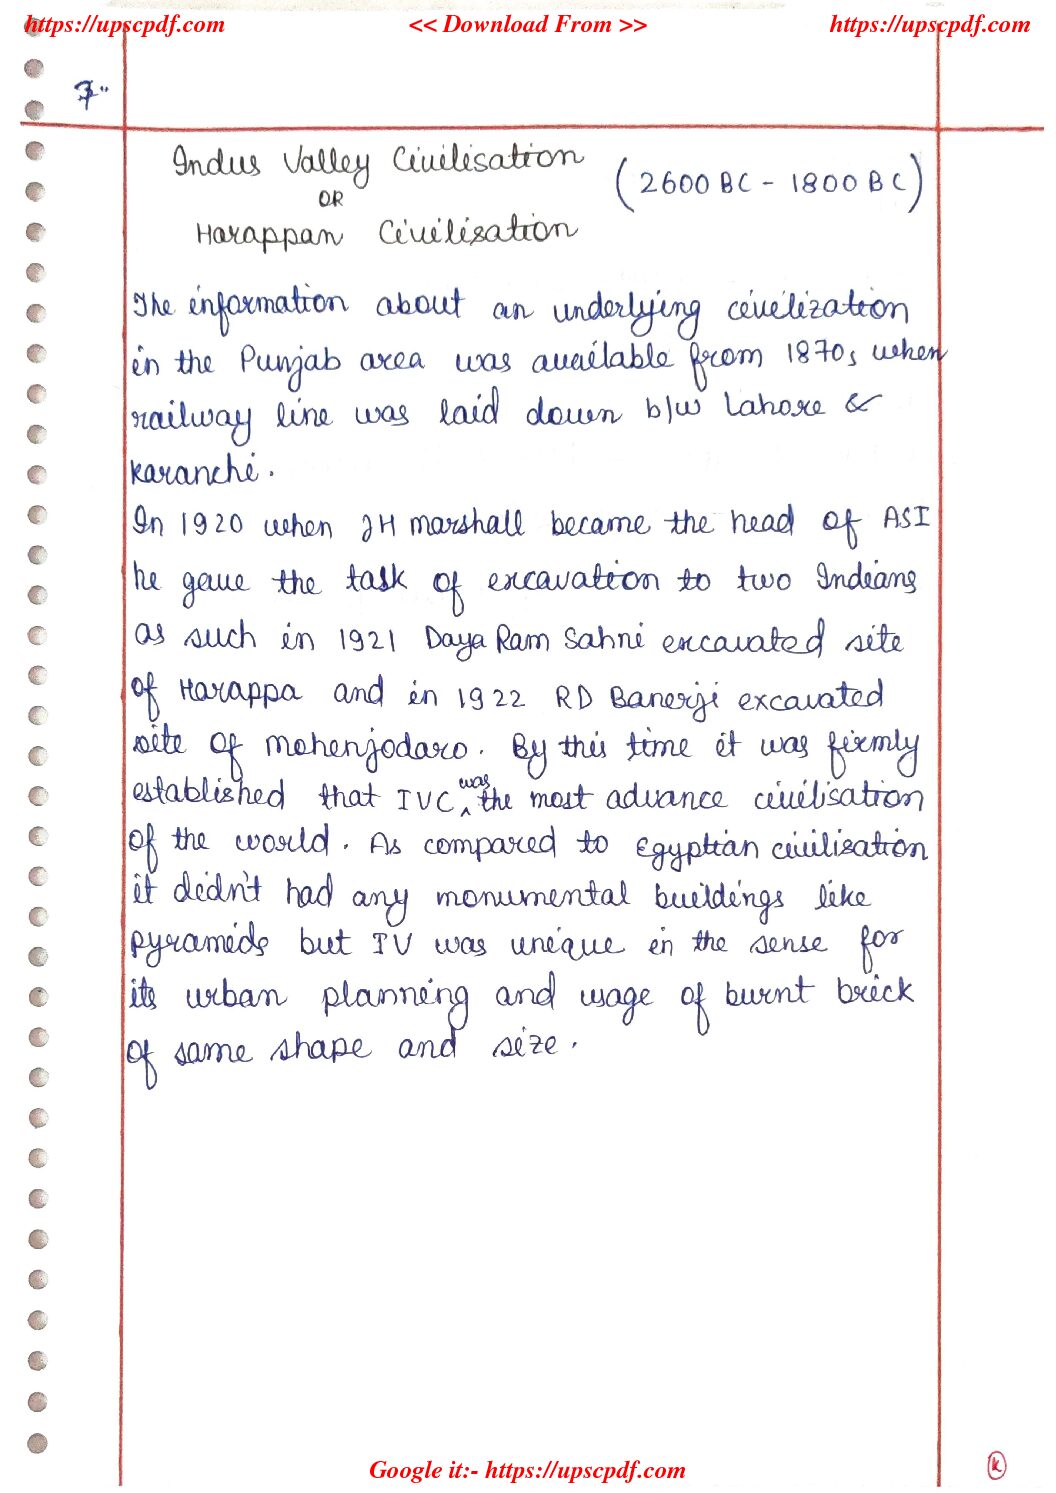 https://upscpdf.com << Download From >> https://upscpdf.com
7"
Indus Valley Civilisation
OR
(2600 BC - 1800 BC)
Harappan Civilisation
The information about an underlying civilization
in the Punjab area was available from 1870s when
railway line was laid down b/w Lahore &
Karanchi.
In 1920 when JH marshall became the head of ASI
he gave the task of excavation to two Indians
as such in 1921 Daya Ram Sahni excavated site
of Harappa and in 1922 RD Banerji excavated
site of mohenjodaro. By this time it was firmly
established that IVC was the most advance civilisation
of the world. As compared to Egyptian civilization
it didn't had any monumental buildings like
pyramids but IV was unique in the sense for
its urban planning and usage of burnt brick
of same shape and size.
Google it:- https://upscpdf.com
K